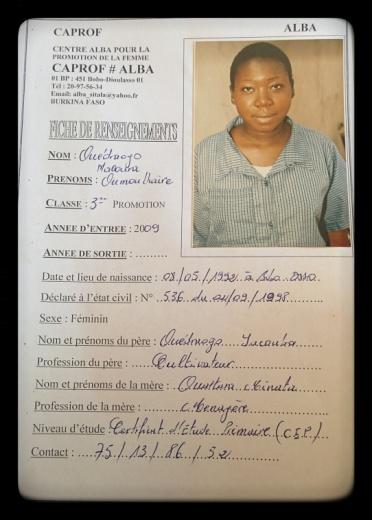 CAPROF
ALBA
CENTRE ALBA POUR LA
PROMOTION DE LA FEMME
CAPROF # ALBA
01 BP : 451 Bobo-Dioulasso 01
Tel : 20-97-56-34
Email: alba_sitala@yahoo.fr
BURKINA FASO
FICHE DE RENSEIGNEMENTS
NOM : Ouédraogo
PRENOMS :
CLASSE : 3ème PROMOTION
ANNEE D'ENTREE : 2009
ANNEE DE SORTIE : .........
Date et lieu de naissance : 08/05/1992 à
Déclaré à l'état civil : N° 536 du 09/1998
Sexe : Féminin
Nom et prénoms du père : Ouédraogo
Profession du père : Cultivateur
Nom et prénoms de la mère : Ouattara
Profession de la mère : Menagère
Niveau d'étude : Certificat d'Etude Primaire (C E P)
Contact : 75 / 13 / 86 / 52